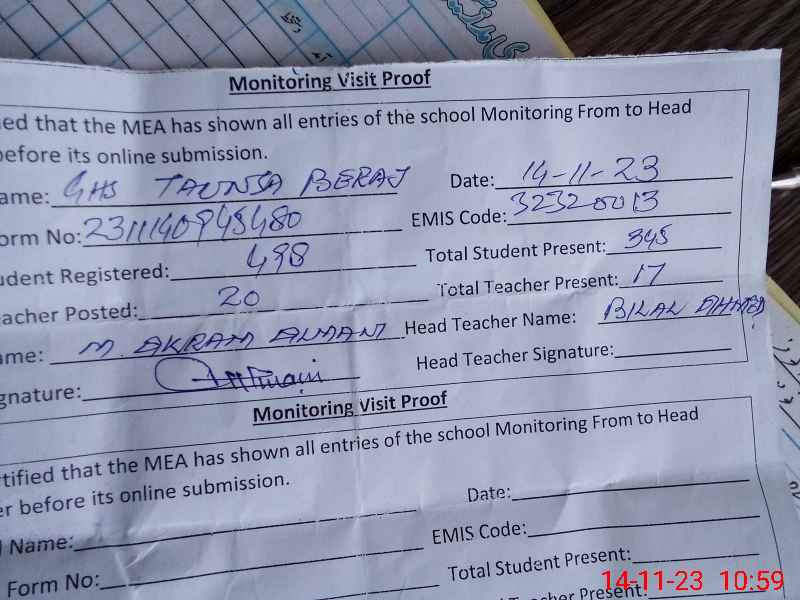 Monitoring Visit Proof
ed that the MEA has shown all entries of the school Monitoring From to Head
efore its online submission.
ame: GHS TAUNSA BERAJ Date: 14-11-23
orm No: 231114094S480 EMIS Code: 32320013
udent Registered: 498 Total Student Present: 345
eacher Posted: 20 Total Teacher Present: 17
ame: M. AKRAM ALMANI Head Teacher Name: BILAL AHMED
gnature: Head Teacher Signature:
Monitoring Visit Proof
rtified that the MEA has shown all entries of the school Monitoring From to Head
er before its online submission.
Date:
l Name: EMIS Code:
Form No: Total Student Present:
cher Present:
14-11-23 10:59